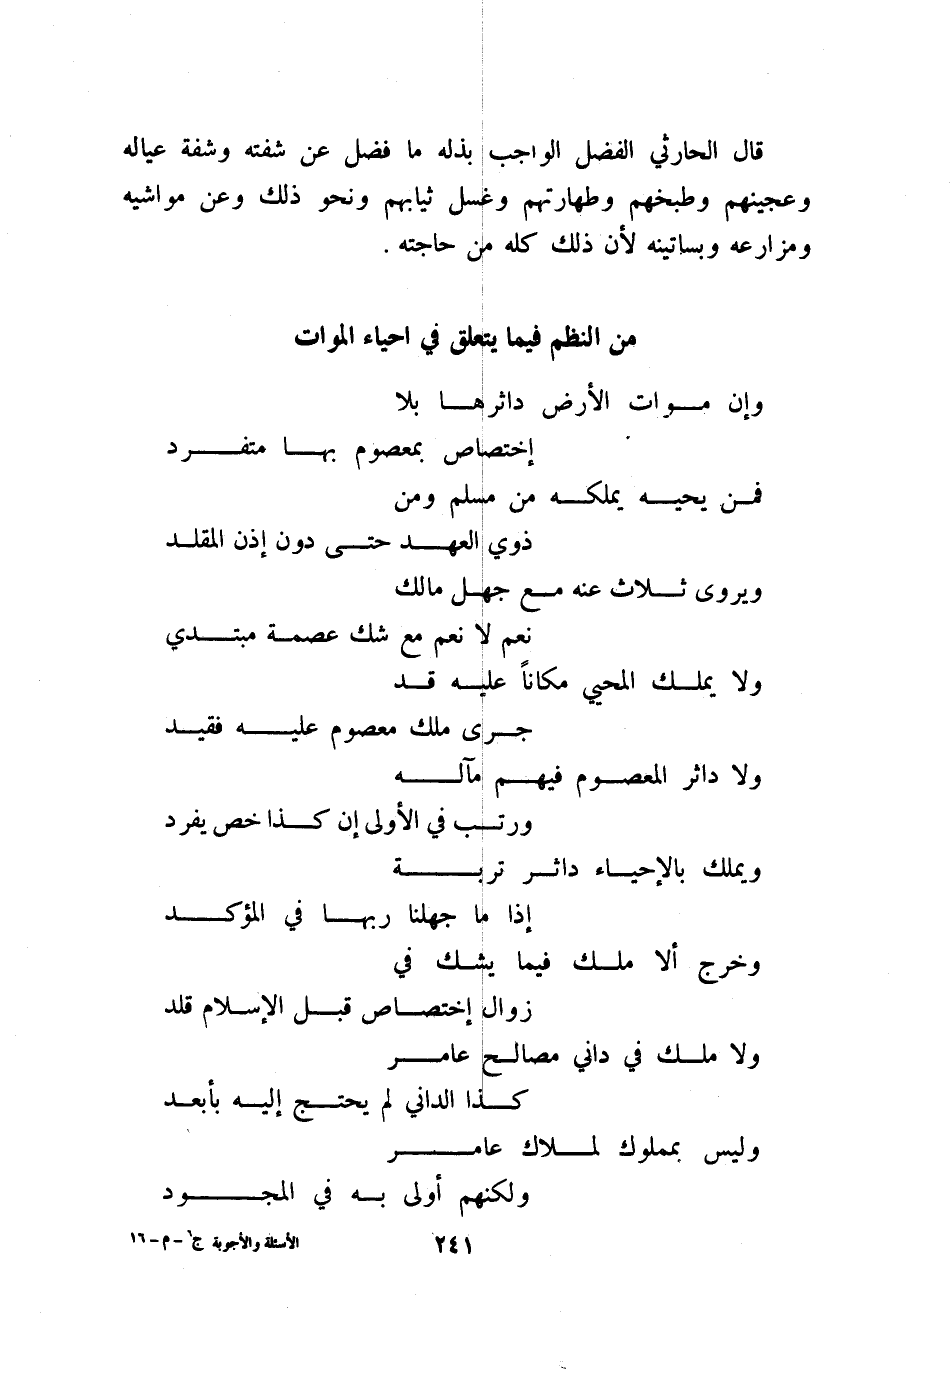 قال الحارثي الفضل الواجب بذله ما فضل عن شفته وشفة عياله
وعجينهم وطبخهم وطهارتهم وغسل ثيابهم ونحو ذلك وعن مواشيه
ومزارعه وبساتينه لأن ذلك كله من حاجته .
من النظم فيما يتعلق في احياء الموات
وإن موات الأرض داثرها بلا
إختصاص بمعصوم بها متفرد
فمن يحيه يملكه من مسلم ومن
ذوي العهد حتى دون إذن المقلد
ويروى ثلاث عنه مع جهل مالك
نعم لا نعم مع شك عصمة مبتدي
ولا يملك المحيي مكاناً عليه قد
جرى ملك معصوم عليه فقيد
ولا داثر المعصوم فيهم مآله
ورتب في الأولى إن كذا خص يفرد
ويملك بالإحياء داثر تربة
إذا ما جهلنا ربها في المؤكد
وخرج ألا ملك فيما يشك في
زوال إختصاص قبل الإسلام قلد
ولا ملك في داني مصالح عامر
كذا الداني لم يحتج إليه بأبعد
وليس بمملوك لملاك عامر
ولكنهم أولى به في المجود
٢٤١
الأسئلة والأجوبة ج٦ - م - ١٦